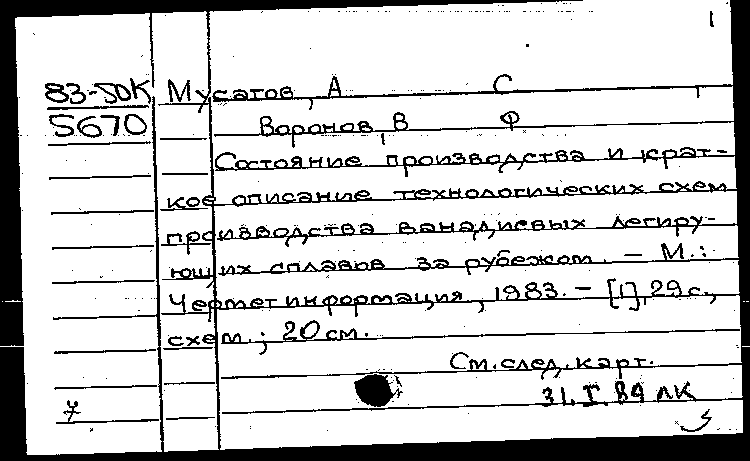 1
83-50К Мусатов, А С
5670 Воронов, В Ф
Состояние производства и крат-
кое описание технологических схем
производства ванадиевых легиру-
ющих сплавов за рубежом. – М.:
Черметинформация, 1983. – [1], 29 с.,
схем.; 20 см.
См. след. карт.
31.I.84 ЛК
7